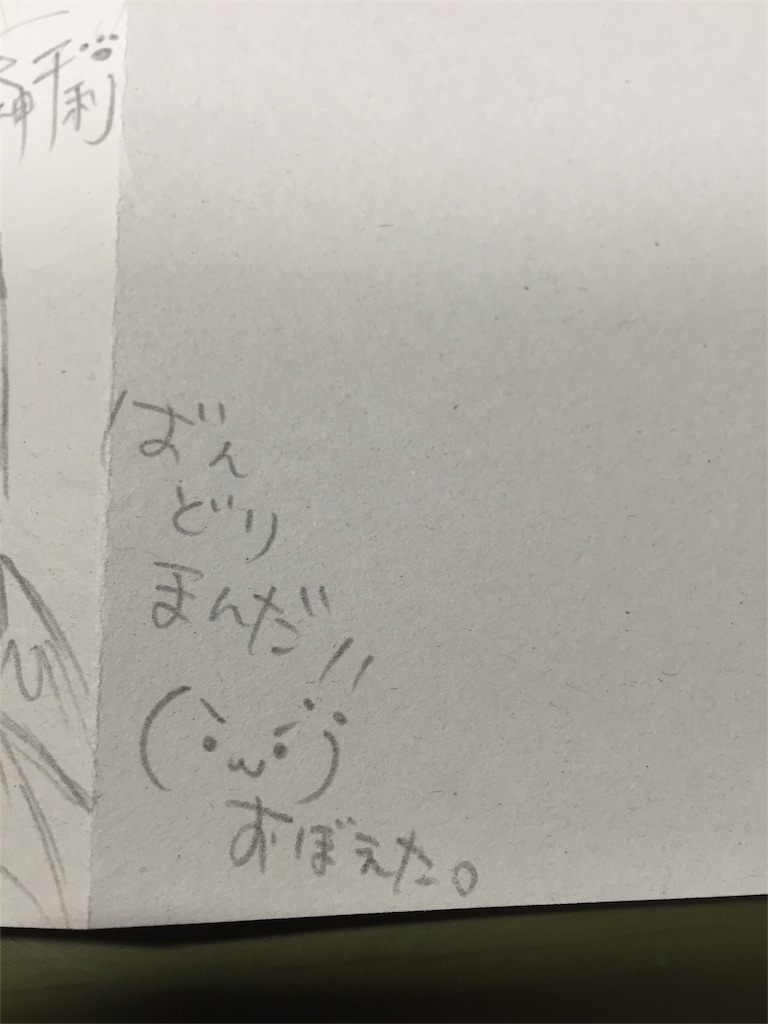 ばん
どり
まんだ!!
(`・ω・´)
おぼえた。